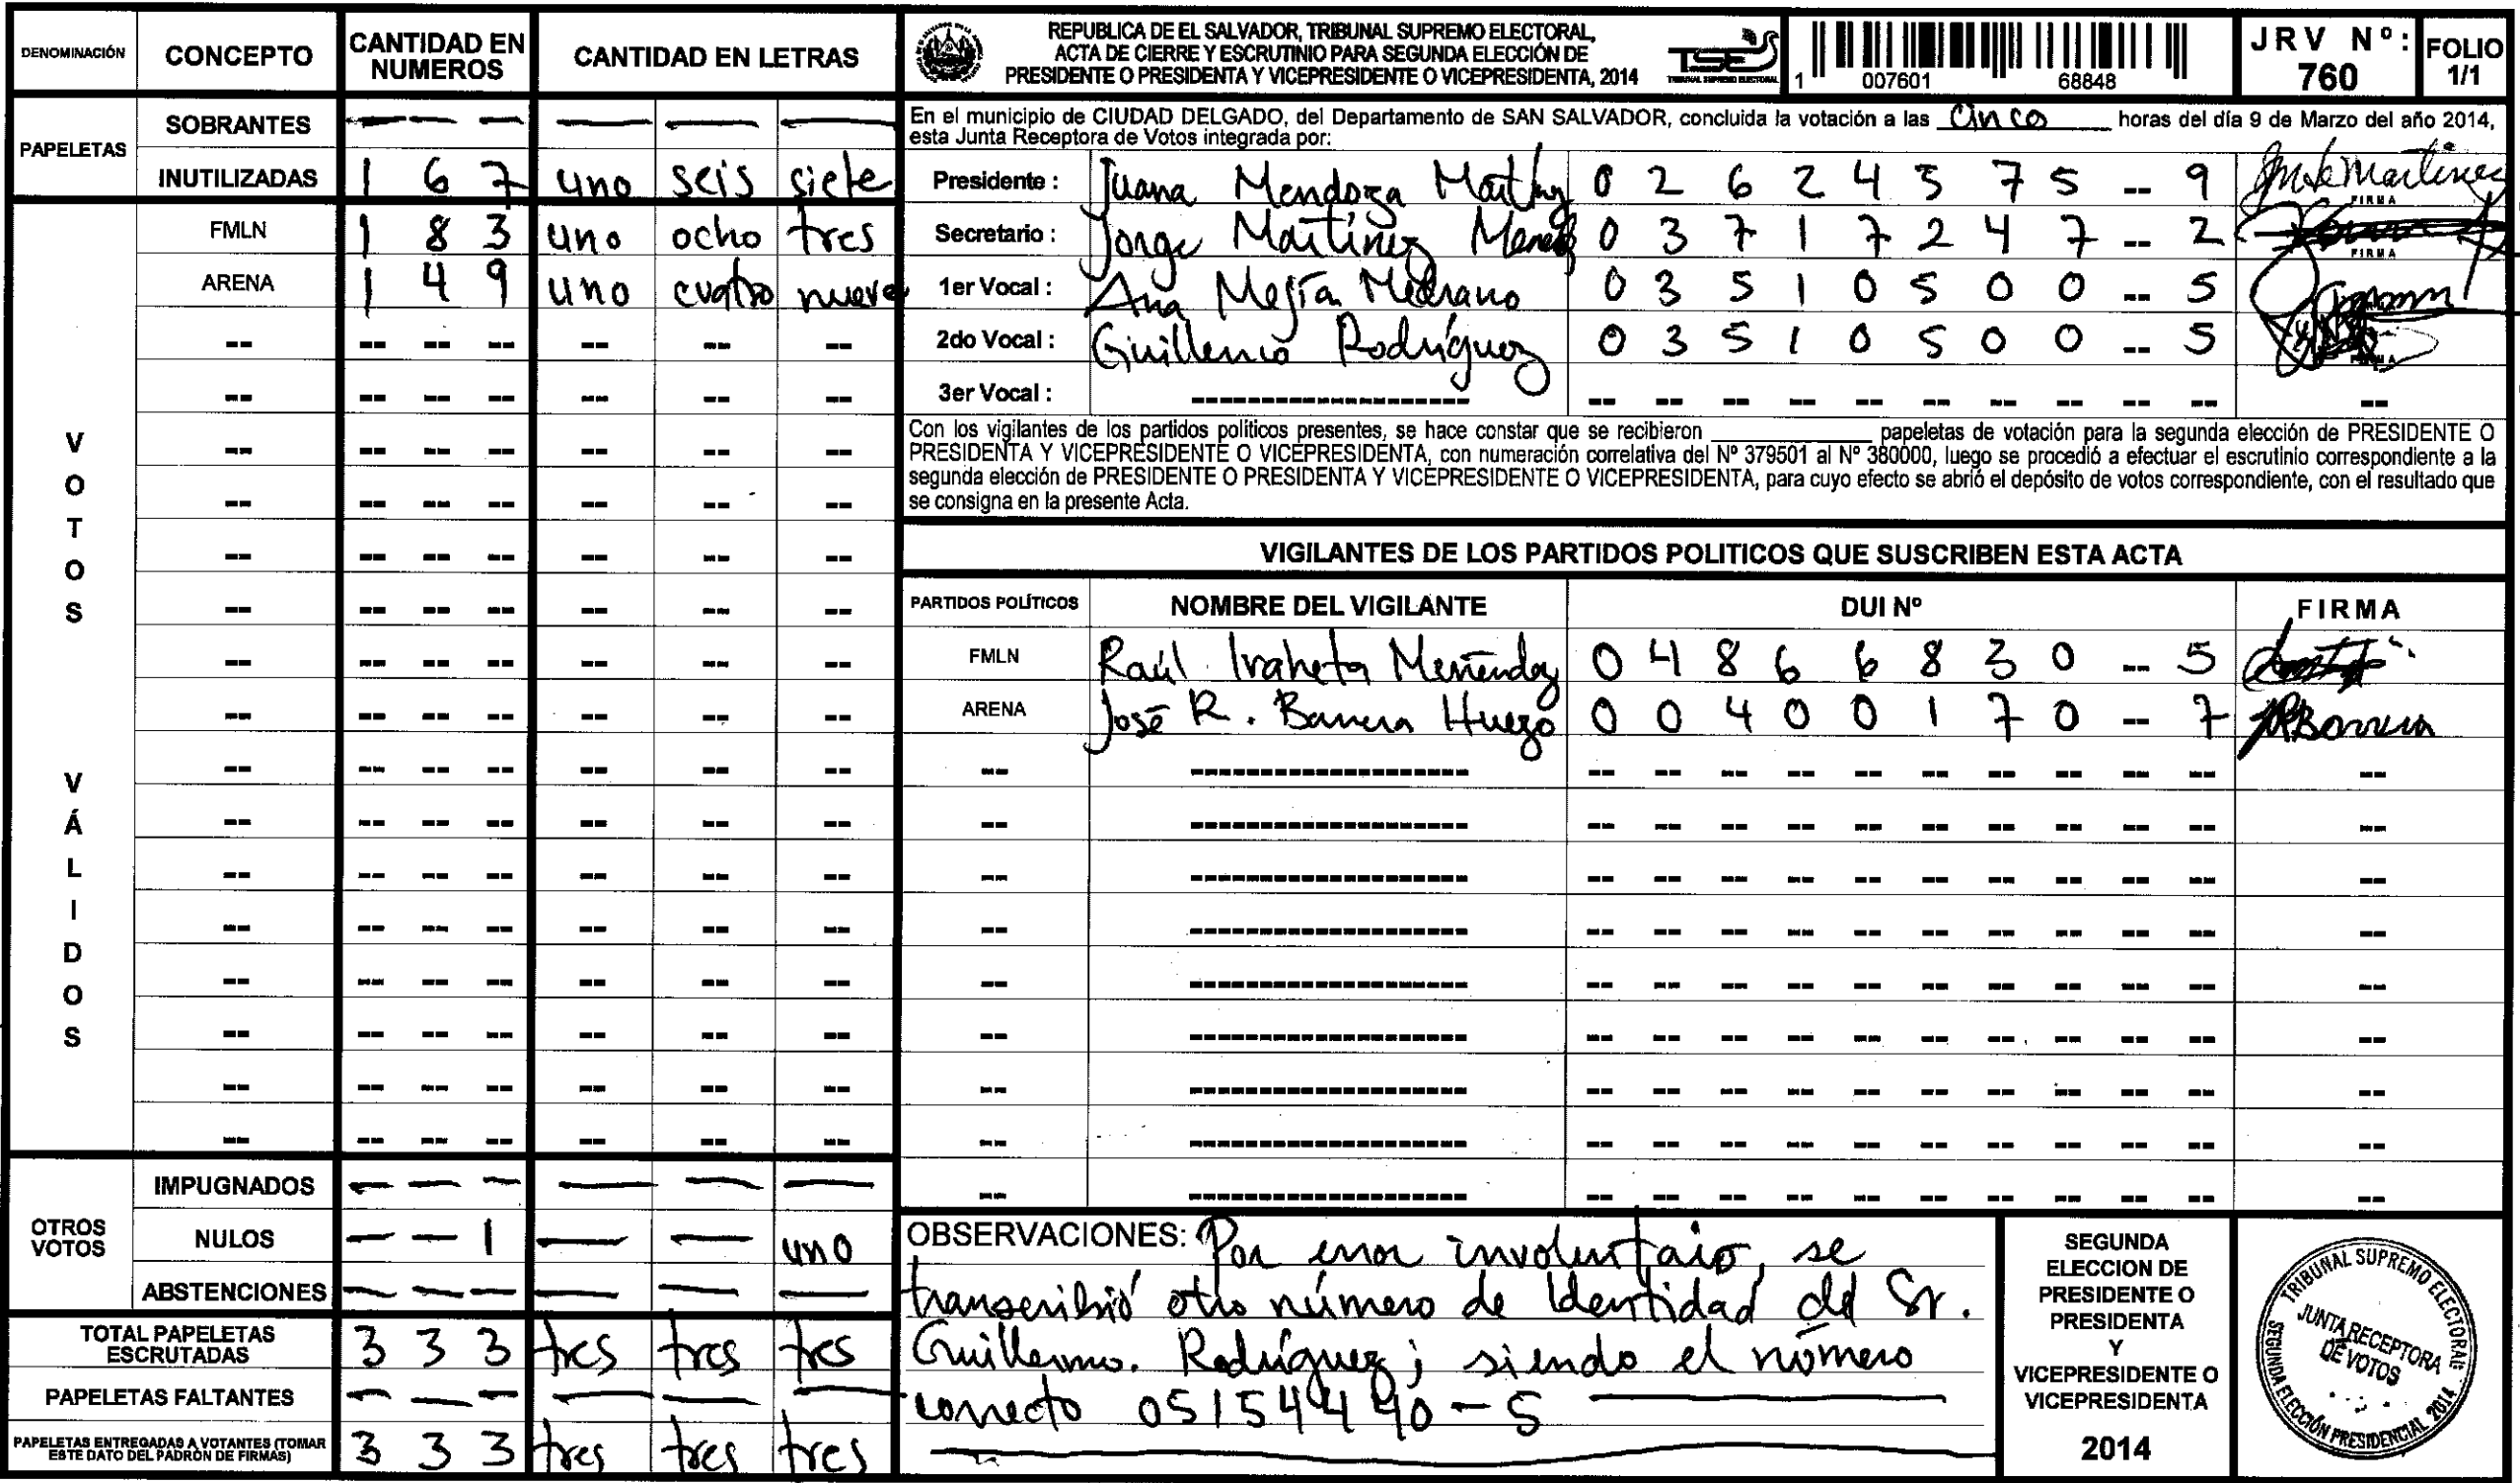 DENOMINACIÓN CONCEPTO CANTIDAD EN NUMEROS CANTIDAD EN LETRAS
PAPELETAS
SOBRANTES — — — — — —
INUTILIZADAS 1 6 7 uno seis siete
VOTOS VÁLIDOS
FMLN 1 8 3 uno ocho tres
ARENA 1 4 9 uno cuatro nueve
OTROS VOTOS
IMPUGNADOS — — — — — —
NULOS — — 1 — — uno
ABSTENCIONES — — — — — —
TOTAL PAPELETAS ESCRUTADAS 3 3 3 tres tres tres
PAPELETAS FALTANTES — — — — — —
PAPELETAS ENTREGADAS A VOTANTES (TOMAR ESTE DATO DEL PADRÓN DE FIRMAS) 3 3 3 tres tres tres
REPUBLICA DE EL SALVADOR, TRIBUNAL SUPREMO ELECTORAL,
ACTA DE CIERRE Y ESCRUTINIO PARA SEGUNDA ELECCIÓN DE
PRESIDENTE O PRESIDENTA Y VICEPRESIDENTE O VICEPRESIDENTA, 2014
TSE
TRIBUNAL SUPREMO ELECTORAL
1 007601 68848
JRV Nº: 760
FOLIO 1/1
En el municipio de CIUDAD DELGADO, del Departamento de SAN SALVADOR, concluida la votación a las cinco horas del día 9 de Marzo del año 2014,
esta Junta Receptora de Votos integrada por:
Presidente : Juana Mendoza 0 2 6 2 4 3 7 5 -- 9
FIRMA
Secretario : Jorge Martínez 0 3 7 1 7 2 4 7 -- 2
FIRMA
1er Vocal : Ana Mejía Medrano 0 3 5 1 0 5 0 0 -- 5
2do Vocal : Guillermo Rodríguez 0 3 5 1 0 5 0 0 -- 5
FIRMA
3er Vocal :
Con los vigilantes de los partidos politicos presentes, se hace constar que se recibieron ____________ papeletas de votación para la segunda elección de PRESIDENTE O
PRESIDENTA Y VICEPRESIDENTE O VICEPRESIDENTA, con numeración correlativa del Nº 379501 al Nº 380000, luego se procedió a efectuar el escrutinio correspondiente a la
segunda elección de PRESIDENTE O PRESIDENTA Y VICEPRESIDENTE O VICEPRESIDENTA, para cuyo efecto se abrió el depósito de votos correspondiente, con el resultado que
se consigna en la presente Acta.
VIGILANTES DE LOS PARTIDOS POLITICOS QUE SUSCRIBEN ESTA ACTA
PARTIDOS POLÍTICOS NOMBRE DEL VIGILANTE DUI Nº FIRMA
FMLN Raúl Iraheta Menéndez 0 4 8 6 6 8 3 0 -- 5
ARENA José R. Barrera Huezo 0 0 4 0 0 1 7 0 -- 7
OBSERVACIONES: Por error involuntario, se
transcribió otro número de Identidad del Sr.
Guillermo. Rodríguez; siendo el número
correcto 05154440-5
SEGUNDA
ELECCION DE
PRESIDENTE O
PRESIDENTA
Y
VICEPRESIDENTE O
VICEPRESIDENTA
2014
TRIBUNAL SUPREMO ELECTORAL
JUNTA RECEPTORA
DE VOTOS
SEGUNDA ELECCIÓN PRESIDENCIAL 2014